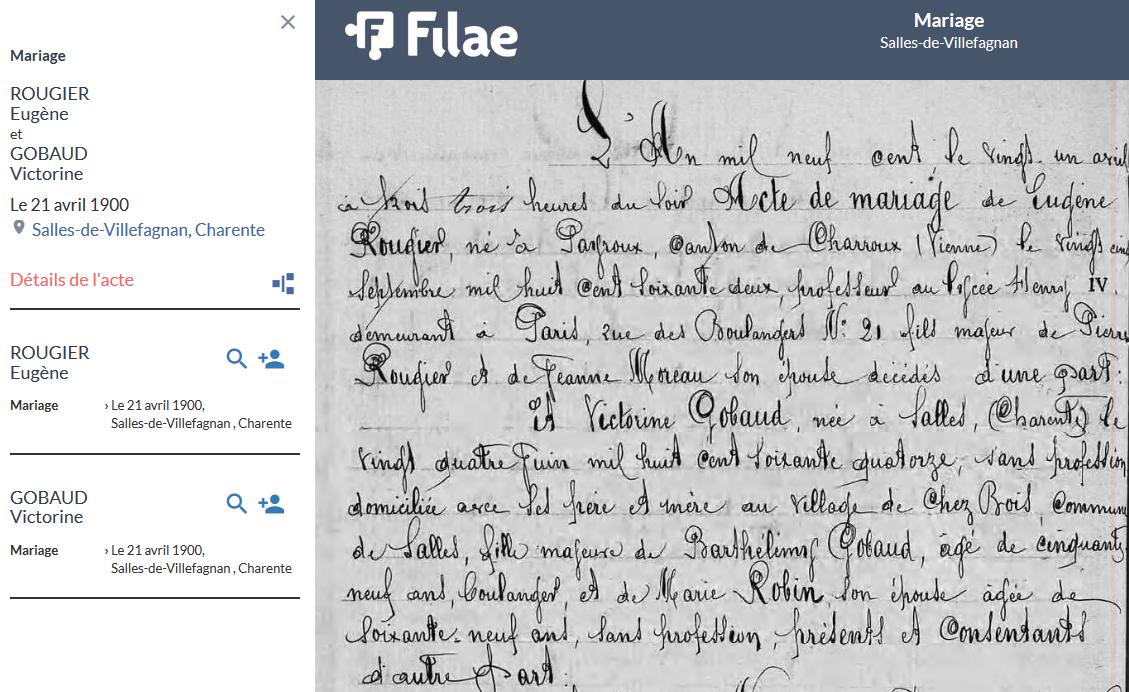 Mariage
ROUGIER
Eugène
et
GOBAUD
Victorine
Le 21 avril 1900
Salles-de-Villefagnan, Charente
Détails de l'acte
ROUGIER
Eugène
Mariage
› Le 21 avril 1900,
Salles-de-Villefagnan , Charente
GOBAUD
Victorine
Mariage
› Le 21 avril 1900,
Salles-de-Villefagnan , Charente
Filae
Mariage
Salles-de-Villefagnan
L'An mil neuf cent, le vingt un avril
à trois trois heures du soir Acte de mariage de Eugène
Rougier, né à Payroux, Canton de Charroux (Vienne) le vingt cinq
Septembre mil huit cent soixante deux, professeur au Lycée Henry IV
demeurant à Paris, rue des Boulangers N° 21 fils majeur de Pierre
Rougier et de Jeanne Moreau son épouse décédés d'une part:
Et Victorine Gobaud, née à Salles, (Charente) le
vingt quatre Juin mil huit cent soixante quatorze, sans profession
domiciliée avec ses père et mère au village de Chez Bois, Commune
de Salles, fille majeure de Barthélimy Gobaud, âgé de cinquante
neuf ans, boulanger, et de Marie Robin, son épouse âgée de
soixante-neuf ans, sans profession, présents et Consentants
d'autre part: